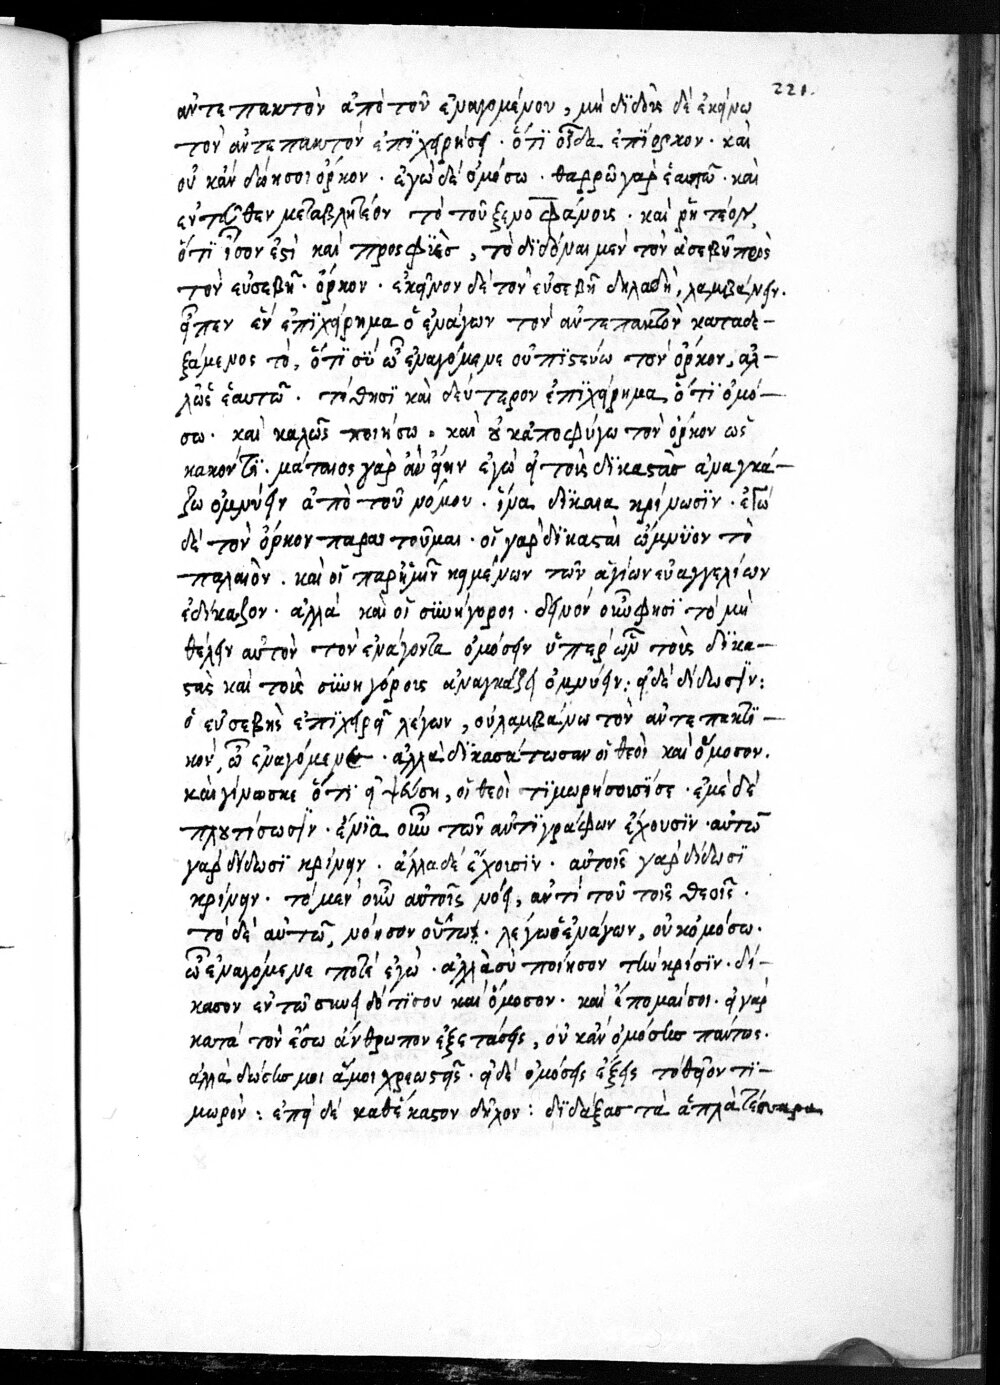 221.
ἀντεπακτὸν ἀπὸ τοῦ ἐναγομένου, μὴ διδοὺς δὲ ἐκείνω
τὸν ἀντεπακτὸν ἐπϊχειρήσει · ὅτϊ οἶδα ἐπίορκον · καὶ
οὐκ ἂν δώησοι ὅρκον · ἐγὼ δὲ ὀμόσω · θαρρῶ γὰρ ἑαυτῶ · καὶ
ἐντεῦθεν μεταβλητέον τὸ τοῦ ξενοφάνους · καὶ ῥητέον,
ὅτϊ ἴσον ἐστὶ καὶ προσφϊὲς, τὸ διδόναι μὲν τὸν ἀσεβῆ πρὸς
τὸν εὐσεβῆ · ὅρκον · ἐκεῖνον δὲ τὸν εὐσεβῆ δηλαδὴ, λαμβάνειν.
εἶπεν ἓν ἐπϊχείρημα ὁ ἐνάγων τὸν ἀντεπακτὸν καταδε-
ξάμενος τὸ, ὅτϊ σὺ ὦ ἐναγόμενε οὐ πϊστεύω τὸν ὅρκον, ἀλ-
λ' ὡς ἑαυτῶ · τίθησϊ καὶ δεύτερον ἐπϊχείρημα ὅτϊ ὀμό-
σω · καὶ καλῶς ποιήσω · καὶ οὐκ ἀποφύγω τὸν ὅρκον ὡς
κακόν τϊ · μάταιος γὰρ ἂν εἴην ἐγὼ εἰ τοὺς δϊκαστὰς ἀναγκά-
ζω ὀμνύειν ἀπὸ τοῦ νόμου · ἵνα δίκαια κρίνωσϊν · ἐγὼ
δὲ τὸν ὅρκον παραιτοῦμαι · οἱ γὰρ δϊκασταὶ ὤμνϋον τὸ
παλαιὸν · καὶ οἱ παρ' ἡμῖν κειμένων τῶν ἁγίων εὐαγγελίων
ἐδίκαζον · ἀλλὰ καὶ οἱ συνήγοροι · δεινὸν οὖν φησϊ τὸ μὴ
θέλειν αὐτὸν τὸν ἐνάγοντα ὀμόσειν ὑπὲρ ὧν τοὺς δϊκα-
στὰς καὶ τοὺς συνηγόρους ἀναγκάζει ὀμνύειν : εἰ δὲ δίδωσϊν :
ὁ εὐσεβὴς ἐπιχειρεῖ λέγων, οὐ λαμβάνω τὸν ἀντεπακτϊ-
κὸν, ὦ ἐναγόμενε · ἀλλὰ δϊκασάτωσαν οἱ θεοὶ καὶ ὄμοσον.
καὶ γίνωσκε ὅτϊ εἰ ψεύση, οἱ θεοὶ τϊμωρήσουσϊ σε · ἐμὲ δὲ
πλουτίσωσϊν · ἔνϊα οὖν τῶν ἀντϊγράφων ἔχουσϊν · αὐτῶ
γὰρ δίδωσϊ κρίνειν · ἄλλα δὲ ἔχουσϊν · αὐτοῖς γὰρ δίδωσϊ
κρίνειν · τὸ μὲν οὖν αὐτοῖς νόει, ἀντὶ τοῦ τοῖς θεοῖς ·
τὸ δὲ αὐτῶ, νόησον οὕτως · λέγω ὁ ἐνάγων, οὐκ ὀμόσω ·
ὦ ἐναγόμενε ποτὲ ἐγὼ · ἀλλὰ σὺ ποίησον τὴν κρίσϊν · δί-
κασον ἐν τῶ συνειδότϊ σου καὶ ὄμοσον · καὶ ἕπομαί σοι · εἰ γὰρ
κατὰ τὸν ἔσω ἄνθρωπον ἐξετάσεις, οὐκ ἂν ὀμόσεις πάντως ·
ἀλλὰ δώσεις μοι ἅ μοι χρεωστεῖς · εἰ δὲ ὀμόσεις ἕξεις τὸ θεῖον τϊ-
μωρὸν : ἐπεὶ δὲ καθ' ἕκαστον δῆλον : διδάξας τὰ ἁπλᾶ τέσσαρα